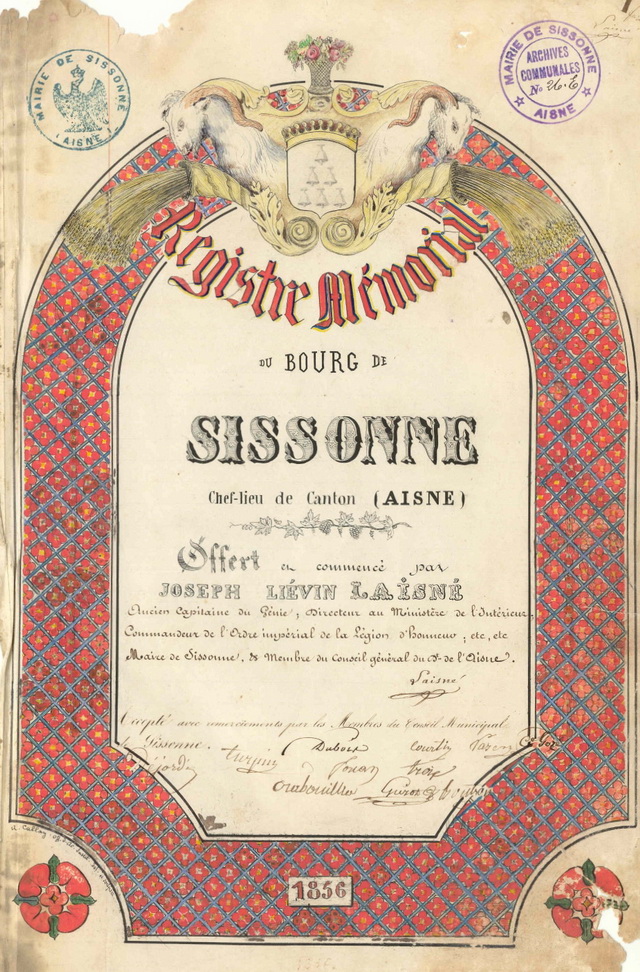 MAIRIE DE SISSONNE
(AISNE)
MAIRIE DE SISSONNE
ARCHIVES
COMMUNALES
No 26.E
AISNE
Registre Mémorial
DU BOURG DE
SISSONNE
Chef-lieu de Canton (AISNE)
Offert et commencé par
JOSEPH LIÉVIN LAISNÉ
Ancien Capitaine du Génie, Directeur au Ministère de l'Intérieur,
Commandeur de l'Ordre impérial de la Légion d'honneur, etc, etc
Maire de Sissonne, & Membre du Conseil général du Dt de l'Aisne.
Laisné
Accepté avec remerciements par les Membres du Conseil Municipal
de Sissonne.
turpin Dubois Courtin
1856